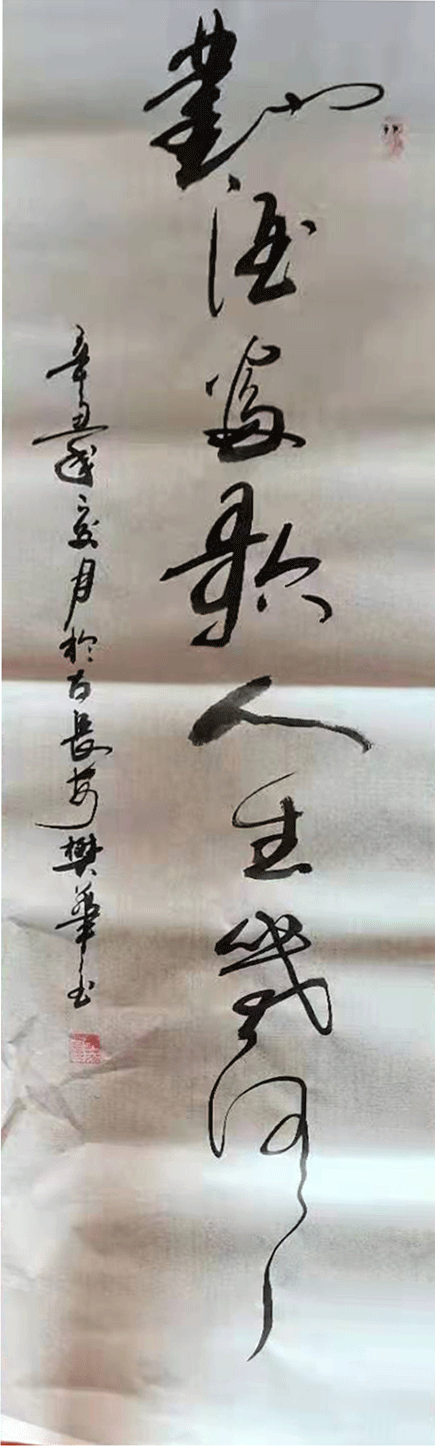 對酒當歌人生幾何
辛丑年夏月於古長安樊華书